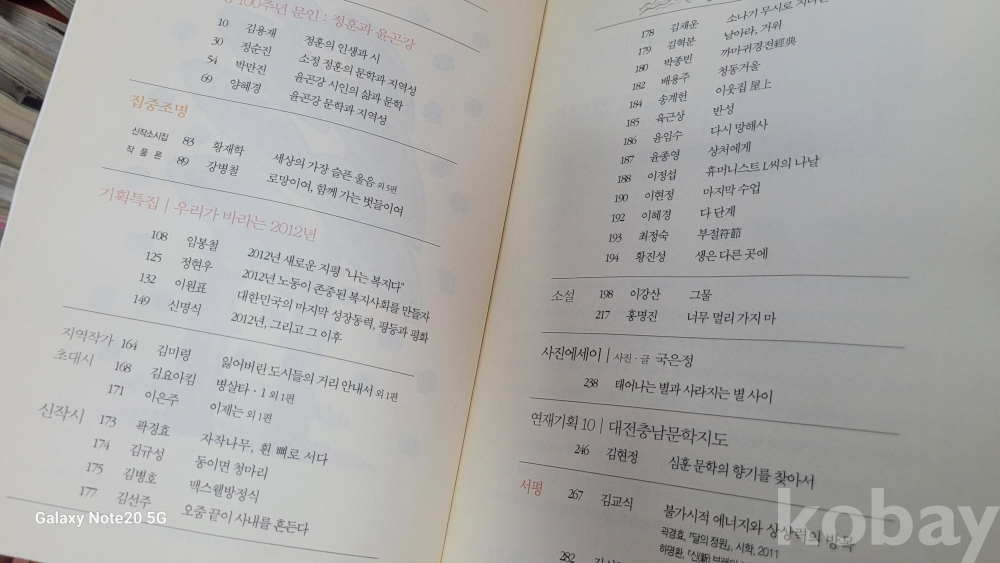 100주년 문인 : 정훈과 윤곤강
10 김용재 정훈의 인생과 시
30 정순진 소정 정훈의 문학과 지역성
54 박만진 윤곤강 시인의 삶과 문학
69 양혜경 윤곤강 문학과 지역성
집중조명
신작소시집 83 황재학 세상의 가장 슬픈 울음 외 5편
작품론 89 강병철 로망이여, 함께 가는 벗들이여
기획특집 | 우리가 바라는 2012년
108 임봉철 2012년 새로운 지평 "나는 복지다"
125 정현우 2012년 노동이 존중된 복지사회를 만들자
132 이원표 대한민국의 마지막 성장동력, 평등과 평화
149 신명식 2012년, 그리고 그 이후
지역작가 초대시
164 김미령 잃어버린 도시들의 거리 안내서 외 1편
168 김요아킴 병살타 · 1 외 1편
171 이은주 이제는 외 1편
신작시 173 곽경효 자작나무, 흰 뼈로 서다
174 김규성 동이면 청마리
175 김병호 맥스웰방정식
177 김선주 오줌 끝이 사내를 흔든다
178 김채운 소나기 무시로
179 김혁분 날아라, 거위
180 박종빈 까마귀경전經典
182 배용주 청동거울
184 송계헌 이웃집 屋上
185 육근상 반성
186 윤임수 다시 망해사
187 윤종영 상처에게
188 이정섭 휴머니스트 L씨의 나날
190 이현정 마지막 수업
192 이혜경 다 단계
193 최정숙 부절符節
194 황진성 생은 다른 곳에
소설 198 이강산 그물
217 홍명진 너무 멀리 가지 마
사진에세이 | 사진 · 글 국은정
238 태어나는 별과 사라지는 별 사이
연재기획 10 | 대전충남문학지도
246 김현정 심훈 문학의 향기를 찾아서
서평 267 김교식 불가시적 에너지와 상상력의 방목
곽경효, 『달의 정원』, 시학, 2011
하명환, 『신(新)
282
Galaxy Note20 5G
kobay